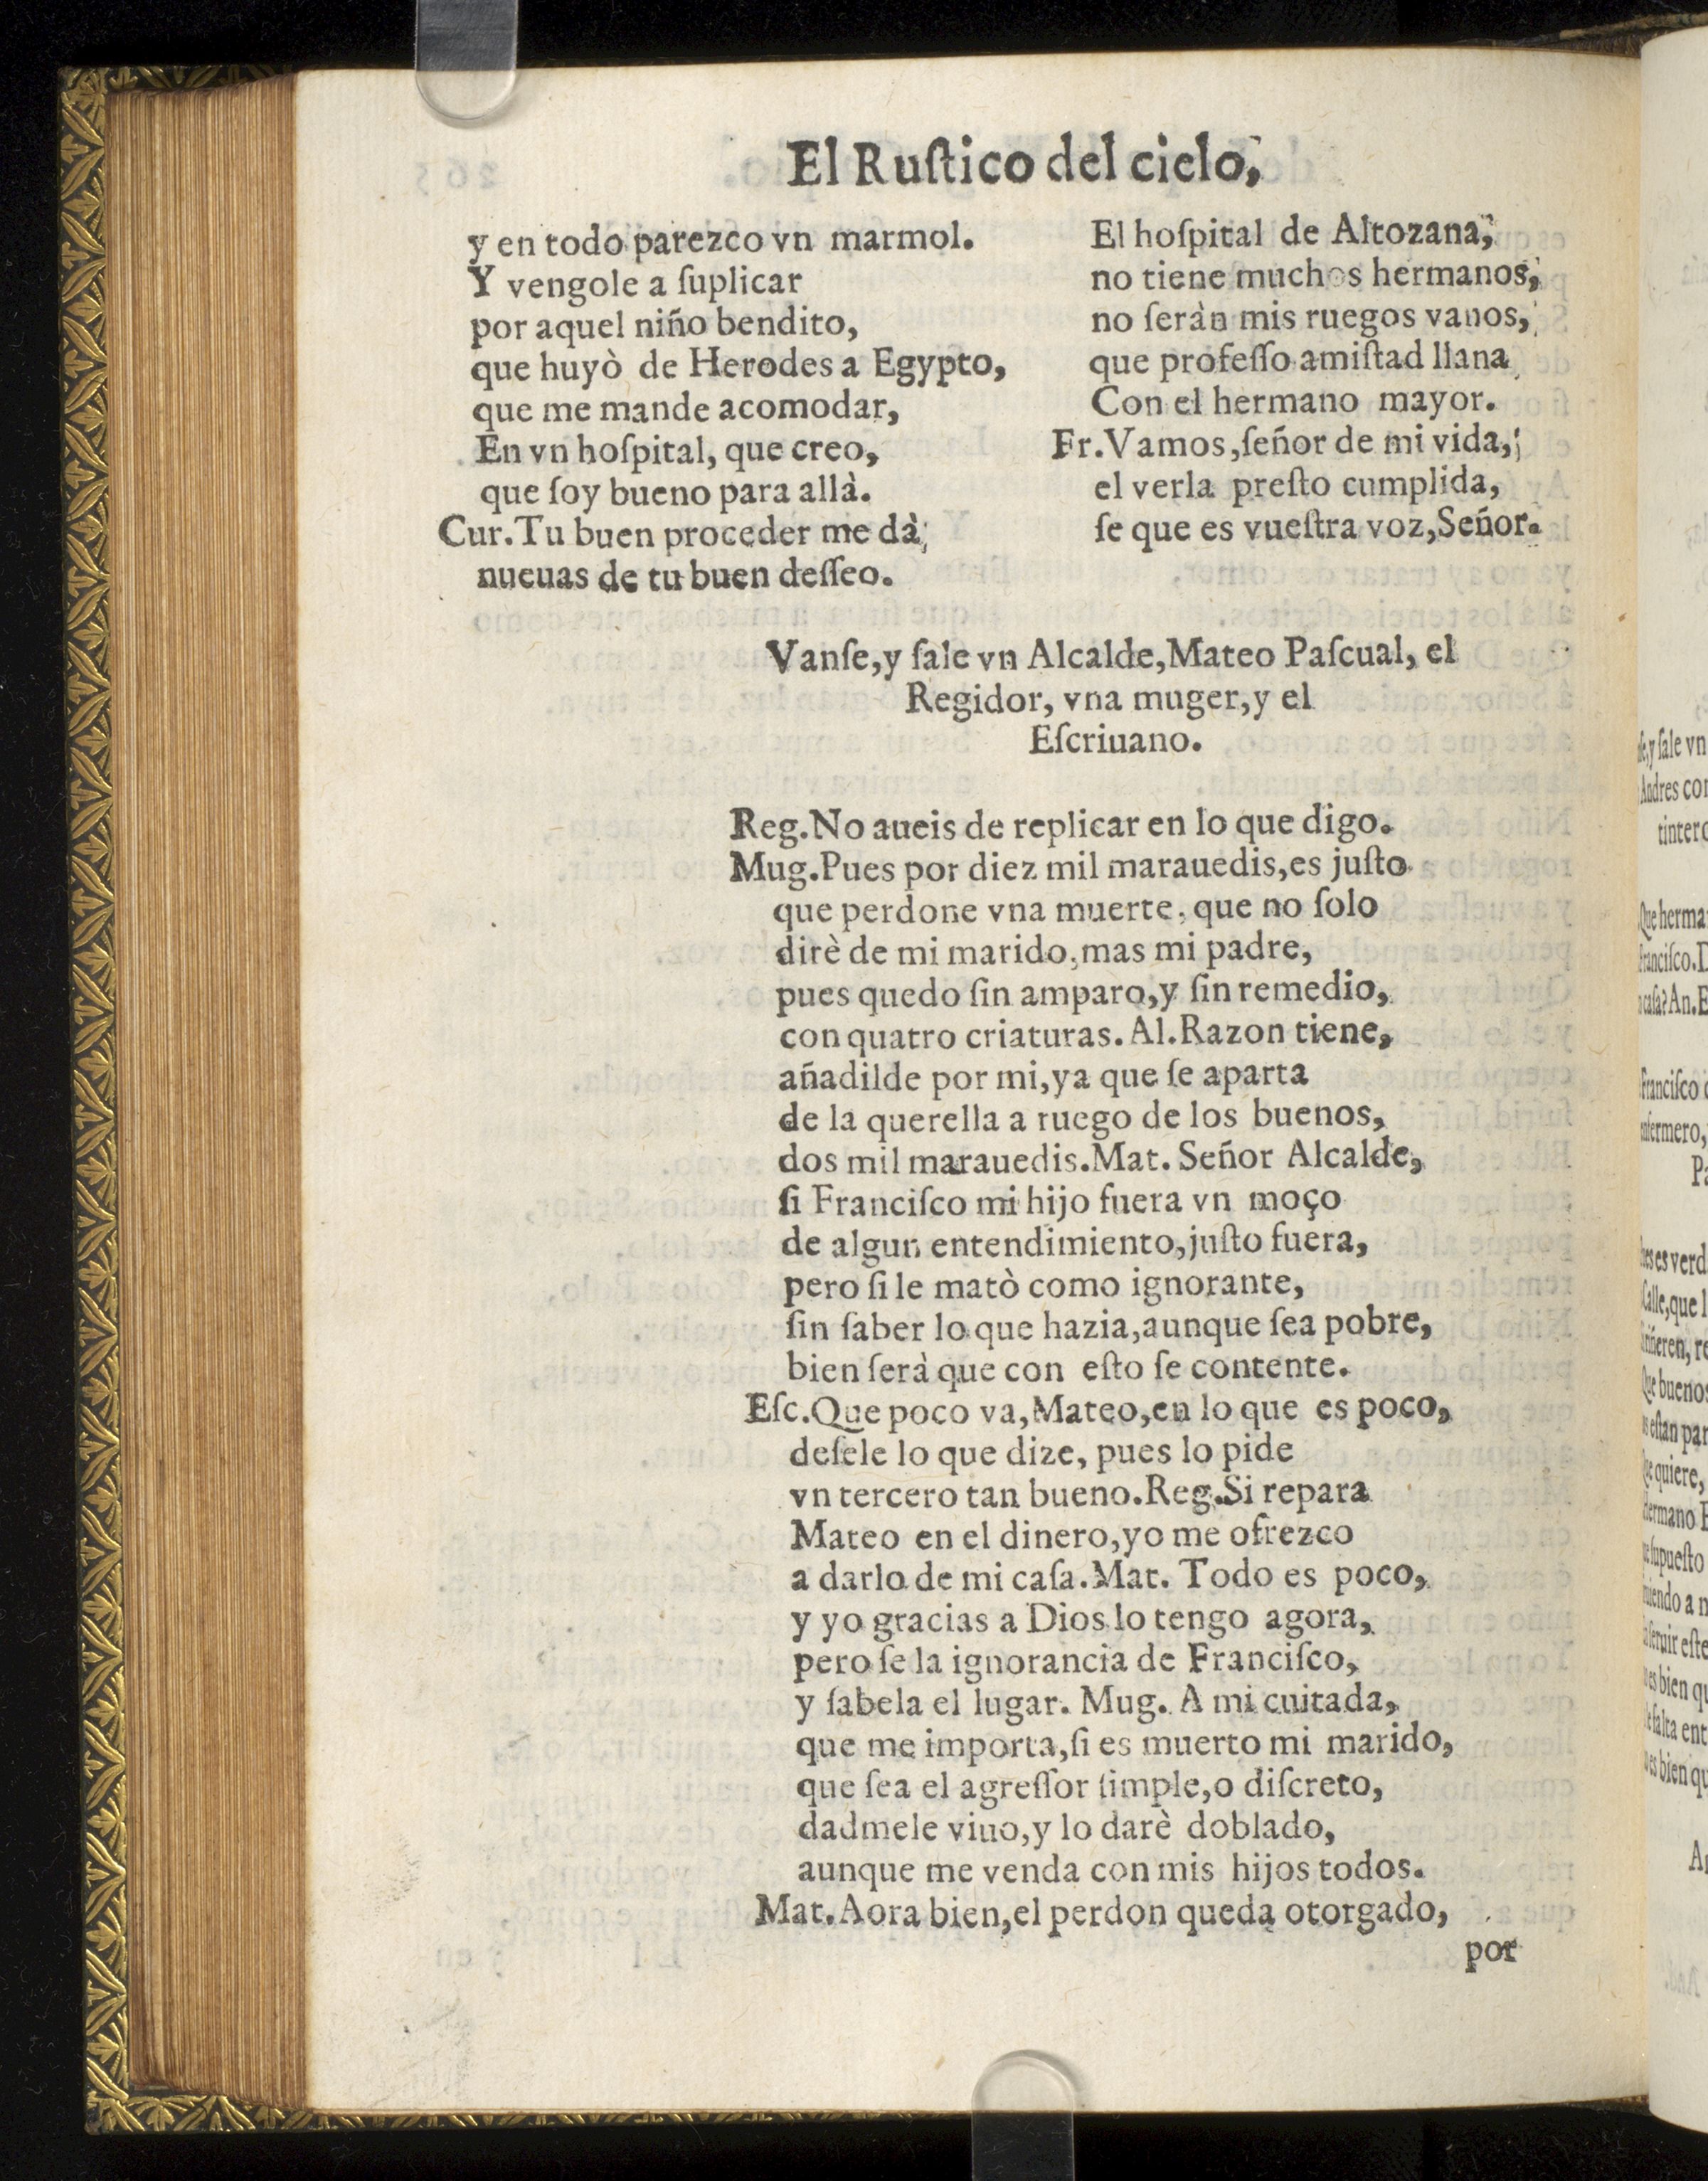 El Ruſtico del cielo,
y en todo parezco vn marmol.
Y vengole a ſuplicar
por aquel niño bendito,
que huyò de Herodes a Egypto,
que me mande acomodar,
En vn hoſpital, que creo,
que ſoy bueno para allà.
Cur. Tu buen proceder me dà,
nueuas de tu buen deſſeo.
El hoſpital de Altozana,
no tiene muchos hermanos,
no ſeràn mis ruegos vanos,
que profeſſo amiſtad llana
Con el hermano mayor.
Fr. Vamos, ſeñor de mi vida,
el verla preſto cumplida,
ſe que es vueſtra voz, Señor.
Vanſe, y ſale vn Alcalde, Mateo Paſcual, el
Regidor, vna muger, y el
Eſcriuano.
Reg. No aueis de replicar en lo que digo.
Mug. Pues por diez mil marauedis, es juſto
que perdone vna muerte, que no ſolo
dirè de mi marido, mas mi padre,
pues quedo ſin amparo, y ſin remedio,
con quatro criaturas. Al. Razon tiene,
añadilde por mi, ya que ſe aparta
de la querella a ruego de los buenos,
dos mil marauedis. Mat. Señor Alcalde,
ſi Franciſco mi hijo fuera vn moço
de algun entendimiento, juſto fuera,
pero ſi le matò como ignorante,
ſin ſaber lo que hazia, aunque ſea pobre,
bien ſerà que con eſto ſe contente.
Eſc. Que poco va, Mateo, en lo que es poco,
deſele lo que dize, pues lo pide
vn tercero tan bueno. Reg. Si repara
Mateo en el dinero, yo me ofrezco
a darlo de mi caſa. Mat. Todo es poco,
y yo gracias a Dios lo tengo agora,
pero ſe la ignorancia de Franciſco,
y ſabela el lugar. Mug. A mi cuitada,
que me importa, ſi es muerto mi marido,
que ſea el agreſſor ſimple, o diſcreto,
dadmele viuo, y lo darè doblado,
aunque me venda con mis hijos todos.
Mat. Aora bien, el perdon queda otorgado,
por